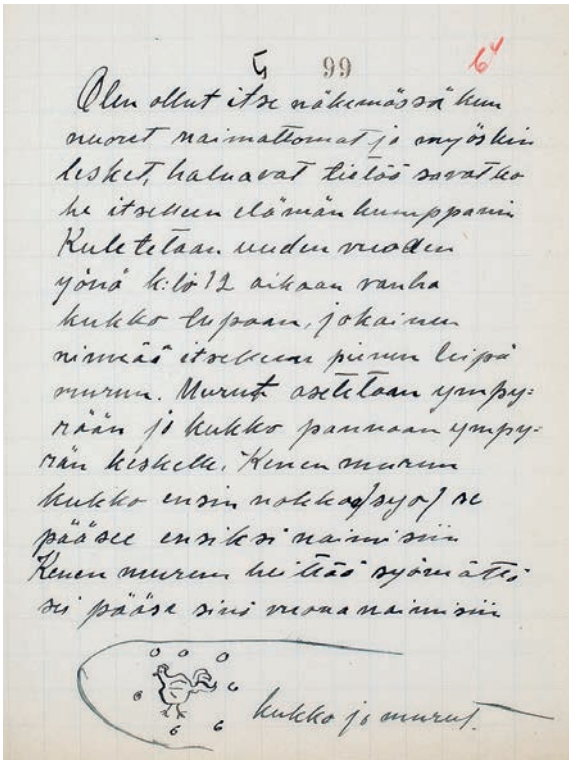 5 99 64
Olen ollut itse näkemässä kun
nuoret naimattomat ja myöskin
lesket, haluavat tietää savatko
he itselleen elämän kumppanin
Kuletetaan uuden vuoden
yönä k:lo 12 aikaan vanha
kukko tupaan, jokainen
nimeää itselleen pienen leipä
murun. Murut asetetaan ympy=
rään ja kukko pannaan ympy=
rän keskelle. Kenen murun
kukko ensin nokkaa/syö/ se
pääsee ensiksi naimisiin
Kenen murun heittää syömättä
sei pääse sinä vuona naimisiin
kukko ja murut.